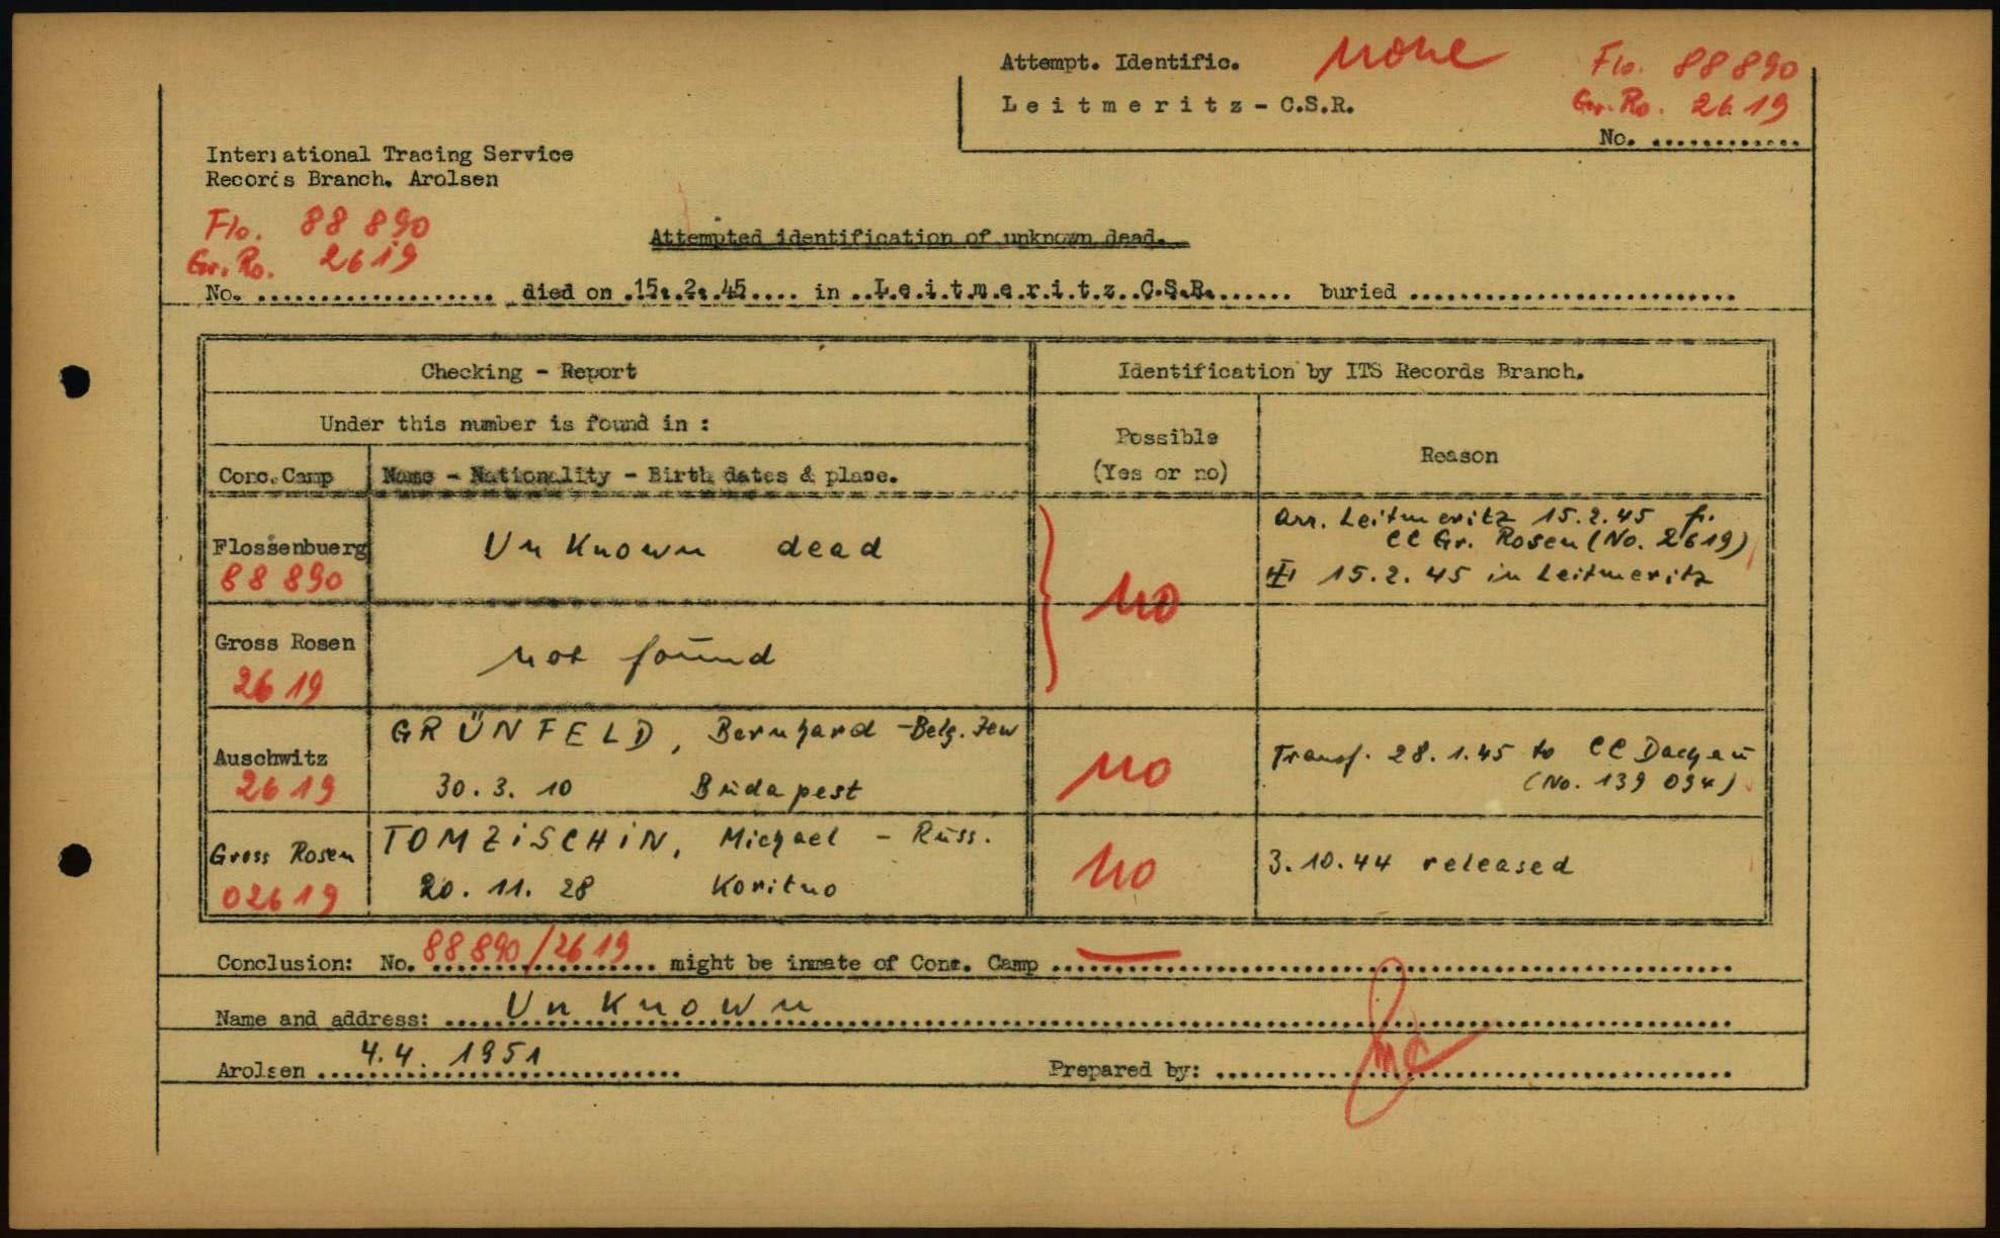 Attempt. Identific. none Flo. 88 890
Leitmeritz - C.S.R. Gr. Ro. 2619
No. ............
International Tracing Service
Records Branch. Arolsen
Flo. 88 890
Gr. Ro. 2619
Attempted identification of unknown dead.
No. ................... died on .15..2..45.... in ..L.e.i.t.m.e.r.i.t.z..C.S.R....... buried ...........................
Checking - Report Identification by ITS Records Branch.
Under this number is found in :
Possible
(Yes or no)
Reason
Conc.Camp Name - Nationality - Birth dates & place.
Flossenbuerg
88 890
Unknown dead
no
Arr. Leitmeritz 15.2.45 fr.
CC Gr. Rosen (No. 2619)
15.2.45 in Leitmeritz
Gross Rosen
2619
not found
Auschwitz
2619
GRÜNFELD, Bernhard - Belg. Jew
30.3.10 Budapest
no
Transf. 28.1.45 to CC Dachau
(No. 139 094)
Gross Rosen
02619
TOMZiSCHiN, Michael - Russ.
20.11.28 Koritno
no
3.10.44 released
Conclusion: No. 88 890/2619 might be inmate of Conc. Camp —
Name and address: Unknown
Arolsen 4.4.1951 Prepared by: